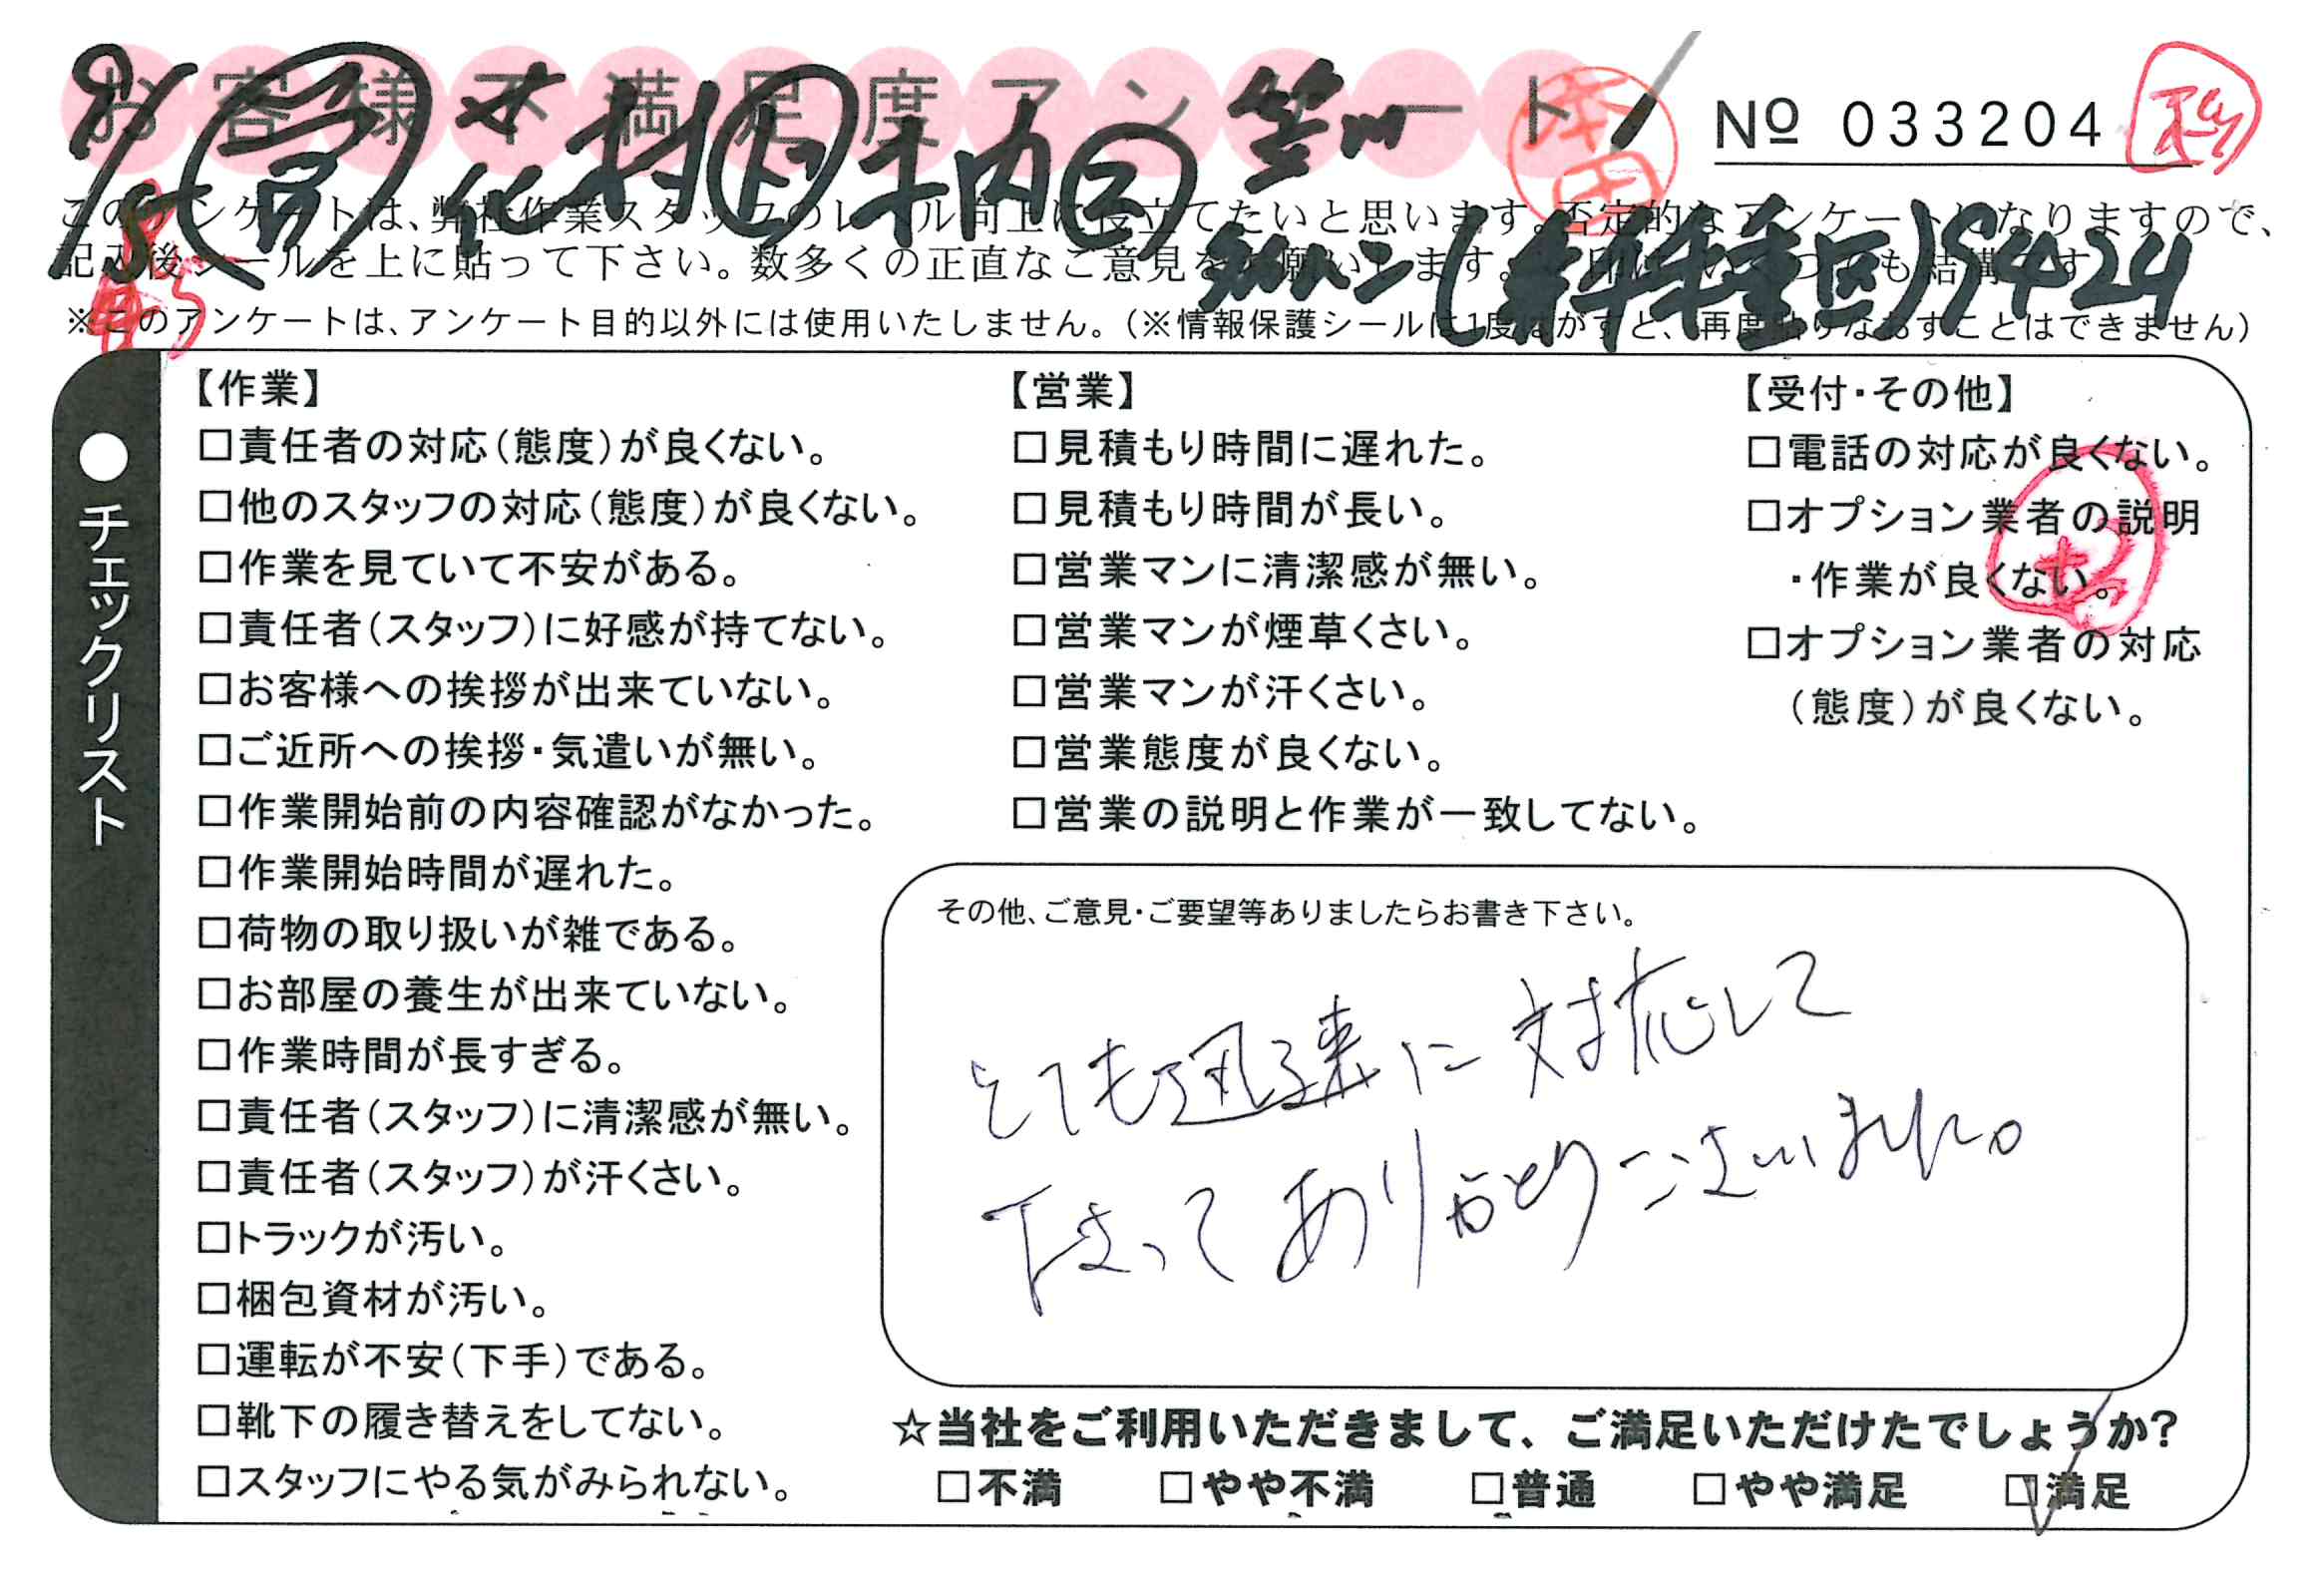 お客様不満足度アンケート
№ 033204
このアンケートは、弊社作業スタッフのレベル向上に役立てたいと思います。否定的なアンケートになりますので、
記入後シールを上に貼って下さい。数多くの正直なご意見をお願いします。
(千種区)5424
※このアンケートは、アンケート目的以外には使用いたしません。(※情報保護シールは1度はがすと、再度貼りなおすことはできません)
本田
●チェックリスト
【作業】
□責任者の対応(態度)が良くない。
□他のスタッフの対応(態度)が良くない。
□作業を見ていて不安がある。
□責任者(スタッフ)に好感が持てない。
□お客様への挨拶が出来ていない。
□ご近所への挨拶・気遣いが無い。
□作業開始前の内容確認がなかった。
□作業開始時間が遅れた。
□荷物の取り扱いが雑である。
□お部屋の養生が出来ていない。
□作業時間が長すぎる。
□責任者(スタッフ)に清潔感が無い。
□責任者(スタッフ)が汗くさい。
□トラックが汚い。
□梱包資材が汚い。
□運転が不安(下手)である。
□靴下の履き替えをしてない。
□スタッフにやる気がみられない。
【営業】
□見積もり時間に遅れた。
□見積もり時間が長い。
□営業マンに清潔感が無い。
□営業マンが煙草くさい。
□営業マンが汗くさい。
□営業態度が良くない。
□営業の説明と作業が一致してない。
【受付・その他】
□電話の対応が良くない。
□オプション業者の説明
・作業が良くない。
□オプション業者の対応
(態度)が良くない。
その他、ご意見・ご要望等ありましたらお書き下さい。
とても迅速に対応して
下さってありがとうございました。
☆当社をご利用いただきまして、ご満足いただけたでしょうか?
□不満 □やや不満 □普通 □やや満足 ☑満足